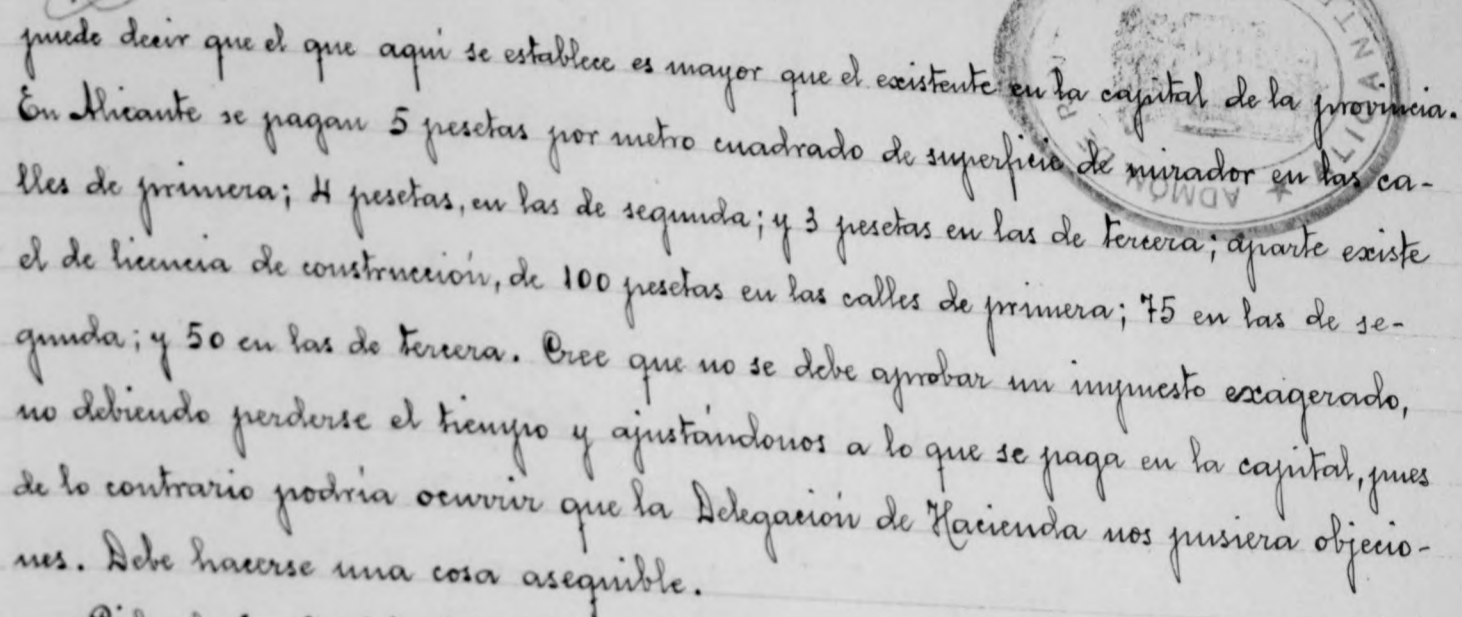 puede decir que el que aquí se establece es mayor que el existente en la capital de la provincia.
En Alicante se pagan 5 pesetas por metro cuadrado de superficie de mirador en las ca-
lles de primera; 4 pesetas, en las de segunda; y 3 pesetas en las de tercera; aparte existe
el de licencia de construcción, de 100 pesetas en las calles de primera; 75 en las de se-
gunda; y 50 en las de tercera. Cree que no se debe aprobar un impuesto exagerado,
no debiendo perderse el tiempo y ajustándonos a lo que se paga en la capital, pues
de lo contrario podría ocurrir que la Delegación de Hacienda nos pusiera objecio-
nes. Debe hacerse una cosa asequible.
ADMÓN